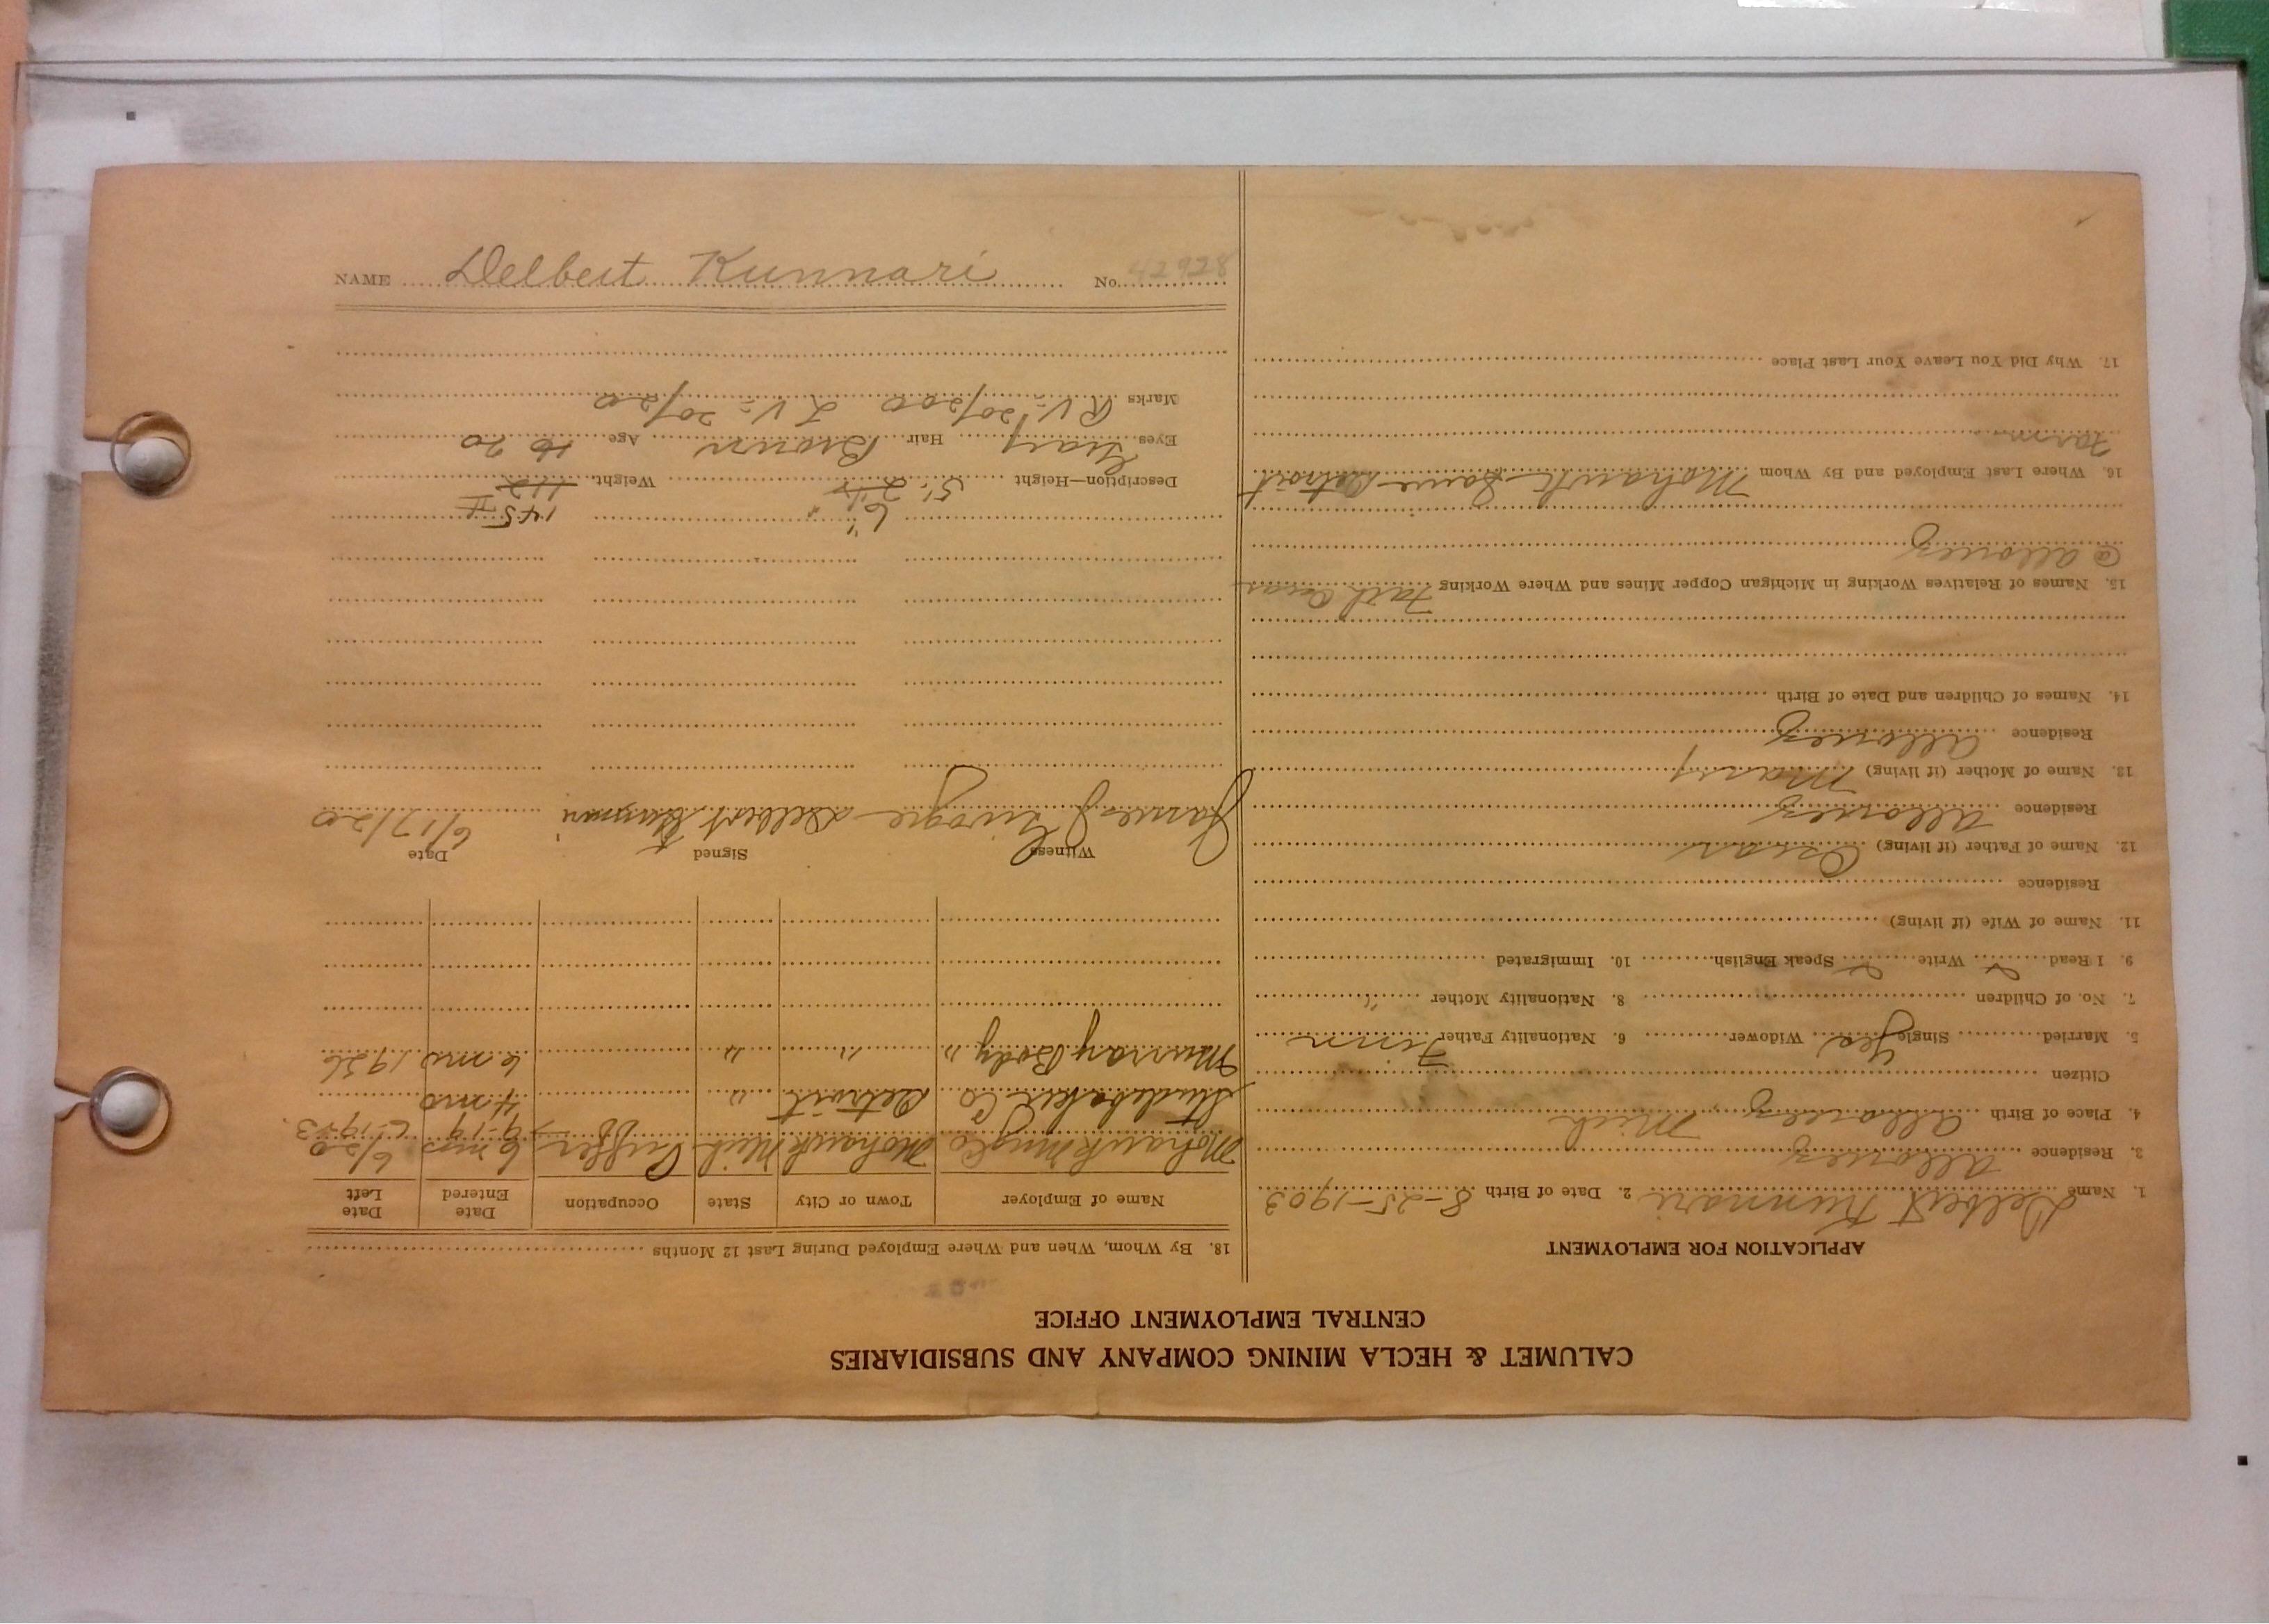 CALUMET & HECLA MINING COMPANY AND SUBSIDIARIES
CENTRAL EMPLOYMENT OFFICE
APPLICATION FOR EMPLOYMENT
1. Name Delbert Kunnari 2. Date of Birth 8-25-1903
3. Residence Allouez
4. Place of Birth Allouez, Mich
Citizen
5. Married Single Yes Widower 6. Nationality Father Finn
7. No. of Children 8. Nationality Mother "
9. I Read Write Speak English 10. Immigrated
11. Name of Wife (if living)
Residence
12. Name of Father (if living) Oscar
Residence Allouez
13. Name of Mother (if living) Mary
Residence Allouez
14. Names of Children and Date of Birth
15. Names of Relatives Working in Michigan Copper Mines and Where Working Fath Oscar
@ Allouez
16. Where Last Employed and By Whom Mohawk - Detroit
Farm
17. Why Did You Leave Your Last Place
18. By Whom, When and Where Employed During Last 12 Months
Name of Employer Town or City State Occupation Date Entered Date Left
Mohawk Mng Co Mohawk Mich Puffer 6 mos 6/20
9-19
Studebaker Co Detroit " 4 mo
Murray Body " " " 6 mo 1926
Witness Signed Date
James J Delbert Kunnari 6/17/20
6" 145
Description—Height 5' 2 Weight 112
Eyes Gray Hair Brown Age 16 20
Marks RV= 20/200 LV= 20/20
NAME Delbert Kunnari No. 42928